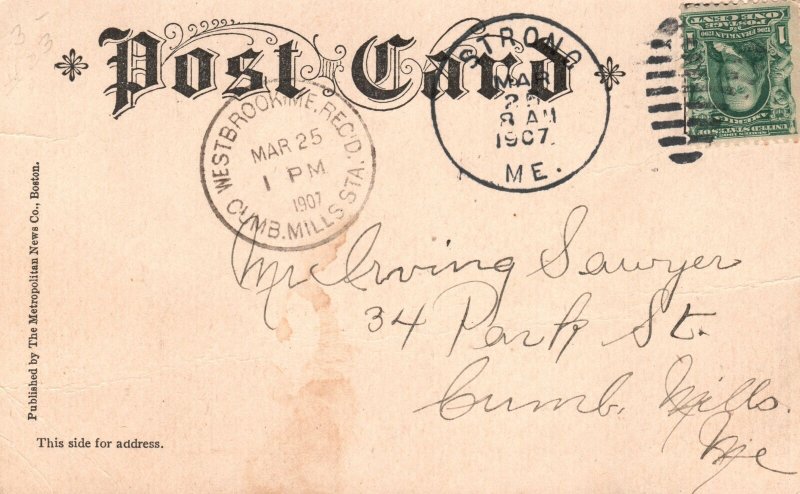 Post Card
STRONG
MAR
8 AM
1907
ME.
WESTBROOK, ME. REC'D.
MAR 25
1 PM
1907
CUMB. MILLS STA.
1 POSTAGE 1
ONE CENT
UNITED STATES OF AMERICA
Mr Irving Sawyer
34 Park St.
Cumb. Mills.
Me
Published by The Metropolitan News Co., Boston.
This side for address.